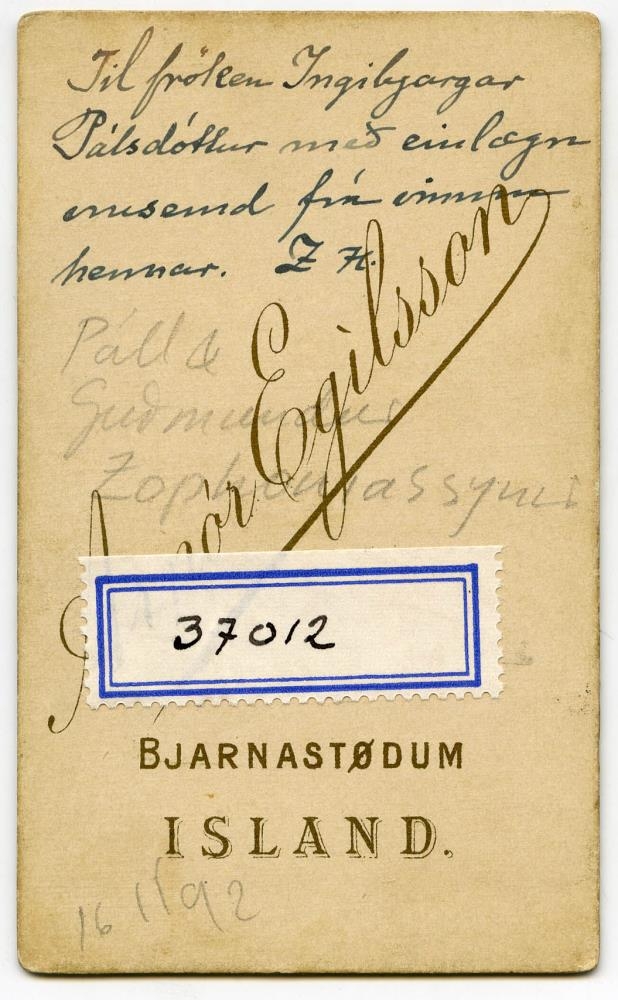 Til fröken Ingibjargar
Pálsdóttur með einlægri
vinsemd frá vinum
hennar. Z H.
Páll &
Guðmundur
Zophoníassynir
Arnór Egilsson
37012
BJARNASTØDUM
ISLAND.
16